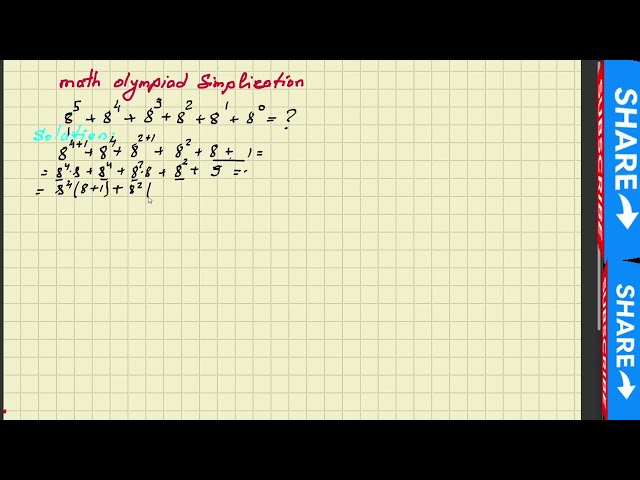 math olympiad Simplication
8⁵ + 8⁴ + 8³ + 8² + 8¹ + 8⁰ = ?
Solution:
8⁴⁺¹ + 8⁴ + 8²⁺¹ + 8² + 8 + 1 =
= 8⁴·8 + 8⁴ + 8²·8 + 8² + 9 =
= 8⁴(8+1) + 8²(
SUBSCRIBE
SHARE
SUBSCRIBE
SHARE